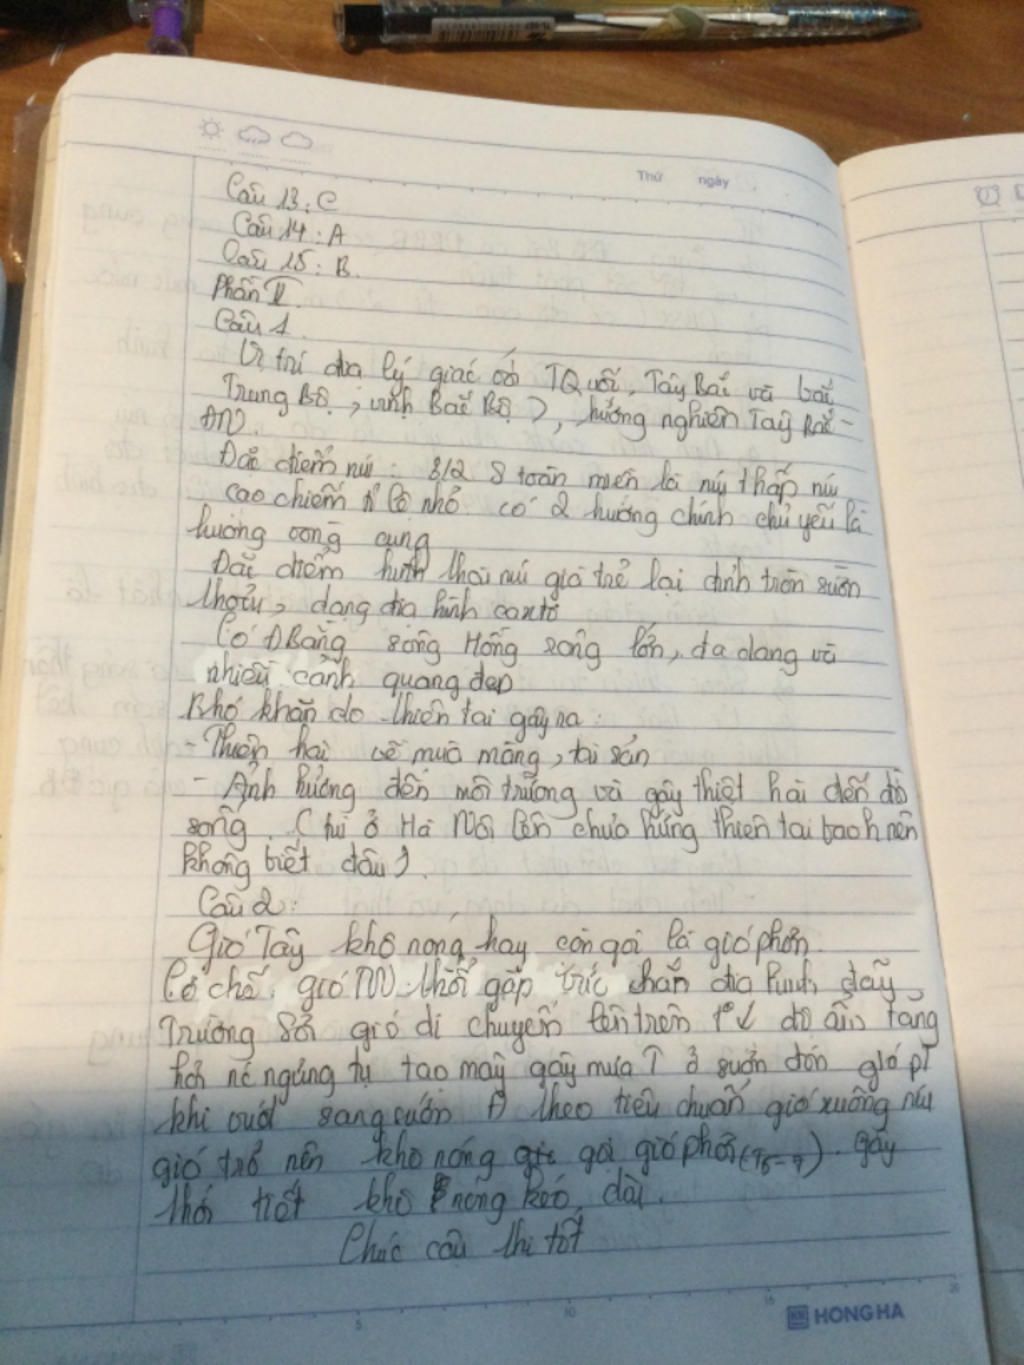 Thứ ngày
Câu 13: C
Câu 14: A
Câu 15: B.
Phần II
Câu 1.
Vị trí địa lý giáp TQuốc, Tây Bắc và bắc
Trung Bộ, vịnh Bắc Bộ), hướng nghiên Tây Bắc -
ĐN.
Đặc điểm núi: 3/2 S toàn miền là núi thấp núi
cao chiếm tỉ lệ nhỏ. có 2 hướng chính chủ yếu là
hướng vòng cung
Đặc điểm hình thái núi già trẻ lại đỉnh tròn sườn
thoải, dạng địa hình caxtơ
Có ĐBằng sông Hồng rộng lớn, đa dạng và
nhiều cảnh quang đẹp
Khó khăn do thiên tai gây ra:
- Thiện hại về mùa màng, tài sản
- Ảnh hưởng đến môi trường và gây thiệt hại đến đời
sống. (hui ở Hà Nội lên chưa hứng thiên tai bao h nên
không biết đâu).
Câu 2:
Gió Tây khô nóng hay còn gọi là gió phơn.
Cơ chế. gió TN thổi gặp bức chắn địa hình dãy
Trường Sơn gió di chuyển lên trên t°↓ độ ẩm tăng
hơi nc ngưng tụ tạo mây gây mưa T ở sườn đón gió
khi vượt sang sườn Đ theo tiêu chuẩn gió xuống núi
gió trở nên khô nóng gọi gió phơn (T5-7). gây
thời tiết khô nóng kéo dài.
Chúc cậu thi tốt
5 10 15 20
HONG HA